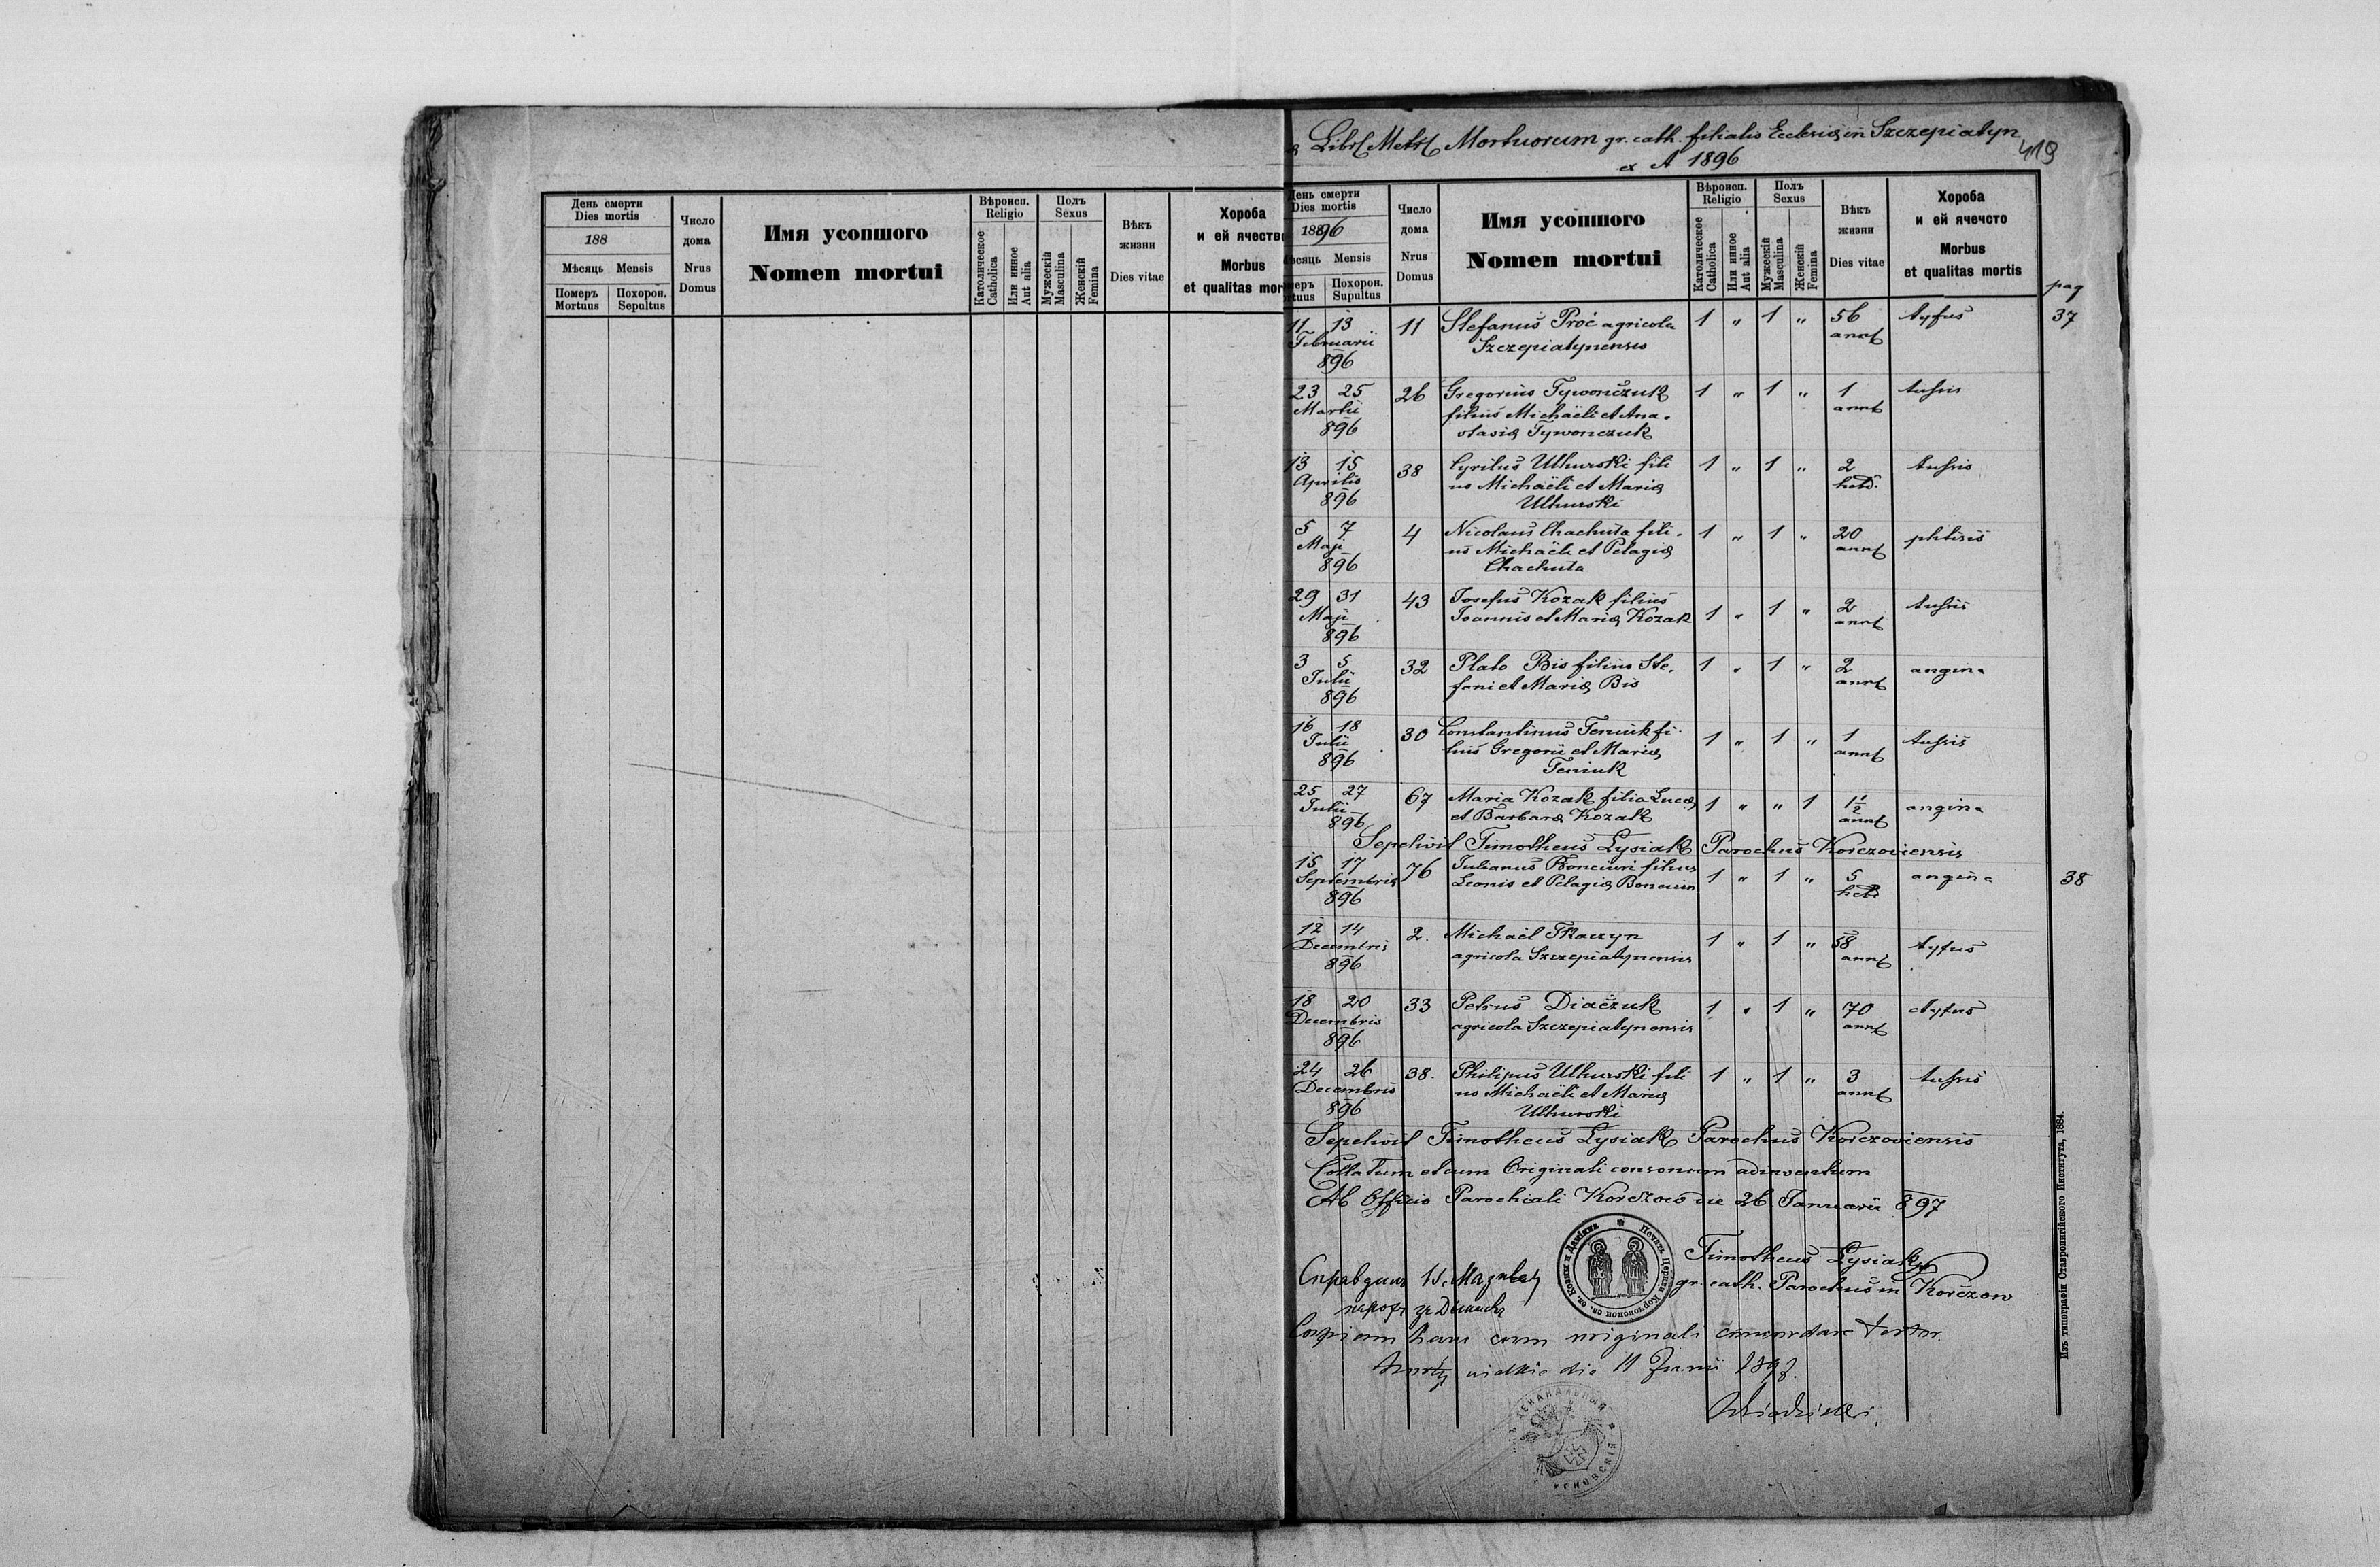 День смерти
Dies mortis
188
Мѣсяць Mensis
Померъ Похорон.
Mortuus Sepultus
Число
дома
Nrus
Domus
Имя усопшого
Nomen mortui
Вѣроисп.
Religio
Католическое
Catholica
Или инное
Aut alia
Полъ
Sexus
Мужескій
Masculina
Женскій
Femina
Вѣкъ
жизни
Dies vitae
Хороба
и ей ячеств
Morbus
et qualitas mor
Libri Metr Mortuorum gr. cath. filialis Ecclesiæ in Szczepiatyn
ex A 1896
419
День смерти
Dies mortis
1896
Мѣсяць Mensis
меръ Похорон.
rtuus Supultus
Число
дома
Nrus
Domus
Имя усопшого
Nomen mortui
Вѣроисп.
Religio
Католическое
Catholica
Или инное
Aut alia
Полъ
Sexus
Мужескій
Masculina
Женскій
Femina
Вѣкъ
жизни
Dies vitae
Хороба
и ей ячечсто
Morbus
et qualitas mortis
pag
11 13 11 Stefanus Proć agricola 1 " 1 " 56 tyfus 37
Februarii Szczepiatynensis ann
896
23 25 26 Gregorius Tywończuk 1 " 1 " 1 tussis
Martii filius Michaëli et Ana-
896 stasiæ Tywonczuk
13 15 38 Cyrilus Uhurski fili 1 " 1 " 2 tussis
Aprilis us Michaëli et Mariæ hebd.
896 Uhurski
5 7 4 Nicolaus Chachuta fili- 1 " 1 " 20 phtisis
Maji us Michaëli et Pelagiæ ann
896 Chachuta
29 31 43 Josefus Kozak filius 1 " 1 " 2 tussis
Maji Joannis et Mariæ Kozak ann
896
3 5 32 Plato Bis filius Ste- 1 " 1 " 2 angina
Julii fani et Mariæ Bis ann
896
16 18 30 Constantinus Teniuk fi- 1 " 1 " 1 tussis
Julii lius Gregorii et Mariæ ann
896 Teniuk
25 27 67 Maria Kozak filia Lucæ 1 " " 1 1½ angina
Julii et Barbaræ Kozak ann
896
Sepelivit Timotheus Lysiak Parochus Korczoviensis
15 17 76 Julianus Bonciuri filius 1 " 1 " 5 angina 38
Septembris Leonis et Pelagiæ hebd
896
12 14 2. Michaël Tkaczyn 1 " 1 " 58 tyfus
Decembris agricola Szczepiatynensis ann
896
18 20 33 Petrus Diaczuk 1 " 1 " 70 tyfus
Decembris agricola Szczepiatynensis ann
896
24 26 38. Philipus Uhurski fili 1 " 1 " 3 tussis
Decembris us Michaëli et Mariæ ann
896 Uhurski
Sepelivit Timotheus Lysiak Parochus Korczoviensis
Collatum et cum Originali consonum adinventum
Ab Officio Parochiali Korczow die 26 Januarii 897
Timotheus Lysiak
gr. cath. Parochus in Korczow
Печать Церкви Корчовской св. св. Козмы и Даміяна
Copiam hanc cum originali concordare testor.
die 11 Junii 1897.
Изъ типографіи Ставропигійского Института, 1884.